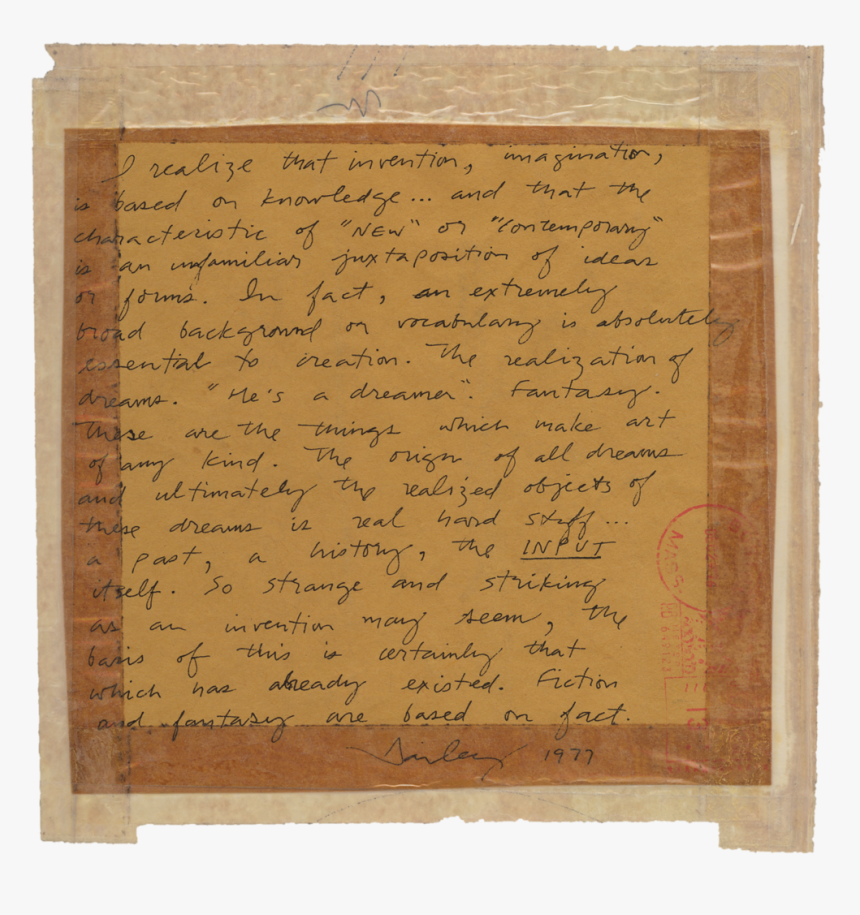 I realize that invention, imagination,
is based on knowledge... and that the
characteristic of "NEW" or "Contemporary"
is an unfamiliar juxtaposition of ideas
or forms. In fact, an extremely
broad background or vocabulary is absolutely
essential to creation. The realization of
dreams. "He's a dreamer". Fantasy.
These are the things which make art
of any kind. The origin of all dreams
and ultimately the realized objects of
these dreams is real hard stuff...
a past, a history, the INPUT
itself. So strange and striking
as an invention may seem, the
basis of this is certainly that
which has already existed. Fiction
and fantasy are based on fact.
1977
MASS.